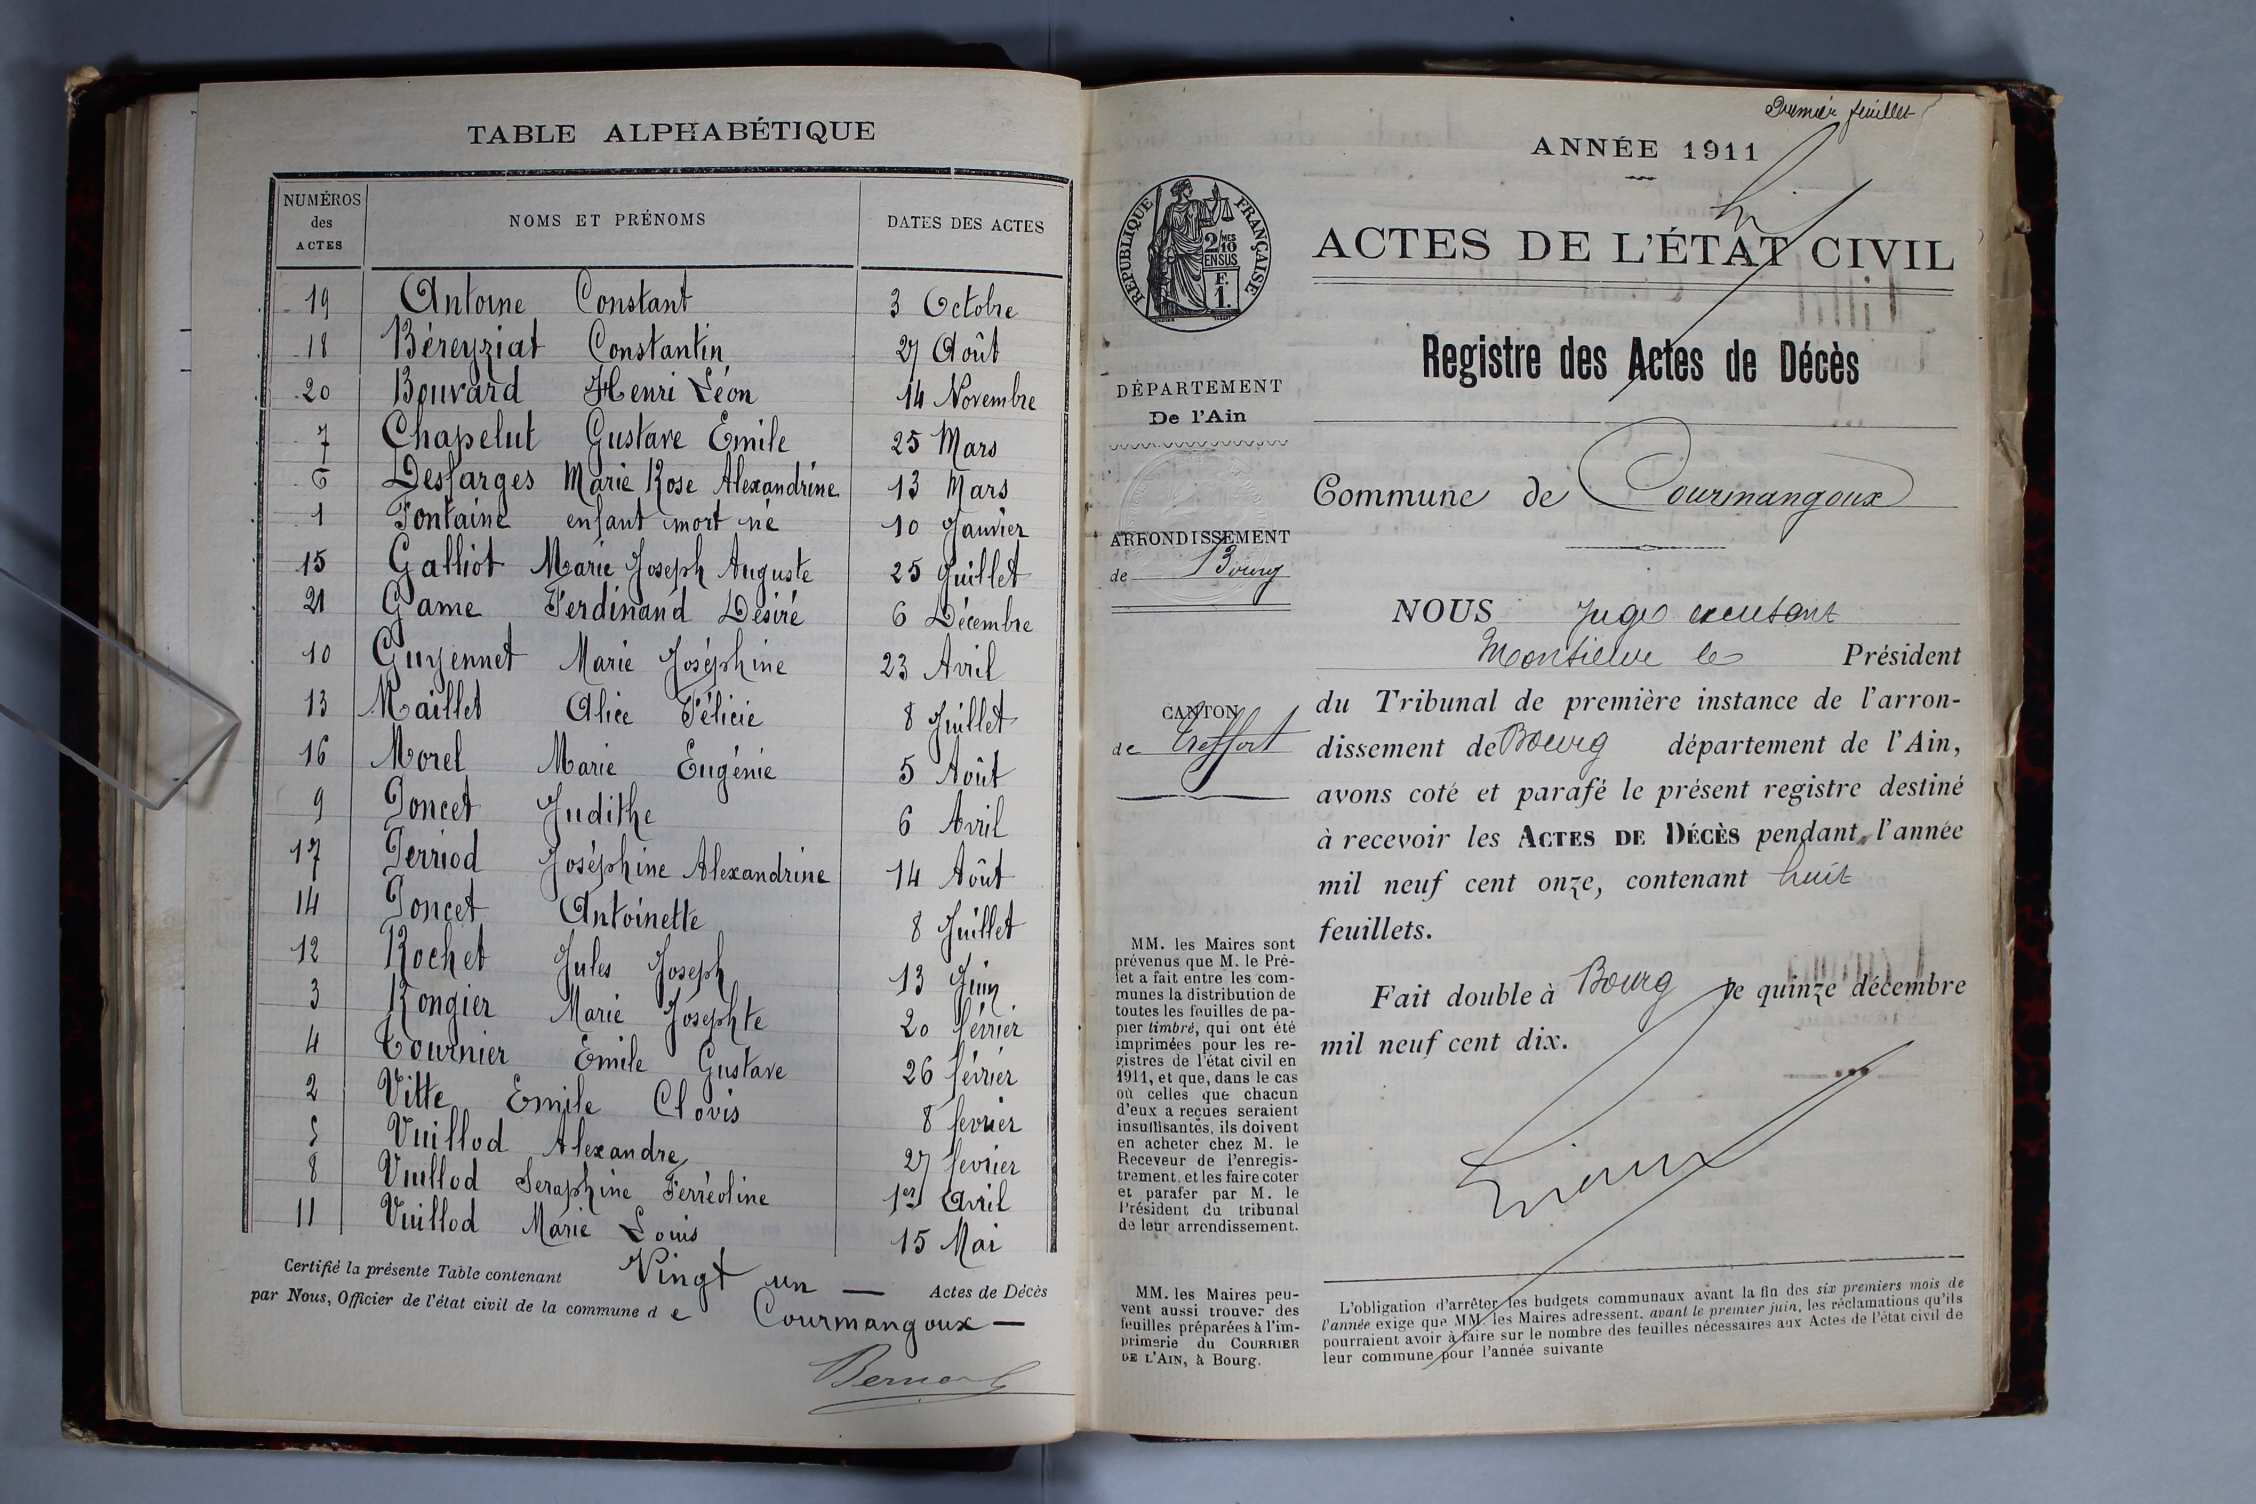 TABLE ALPHABÉTIQUE
NUMÉROS des ACTES NOMS ET PRÉNOMS DATES DES ACTES
19 Antoine Constant 3 Octobre
18 Béreyziat Constantin 27 Août
20 Bouvard Henri Léon 14 Novembre
7 Chapelut Gustave Emile 25 Mars
6 Desfarges Marie Rose Alexandrine 13 Mars
1 Fontaine enfant mort né 10 Janvier
15 Galliot Marie Joseph Auguste 25 Juillet
21 Game Ferdinand Désiré 6 Décembre
10 Guyennet Marie Joséphine 23 Avril
13 Maillet Alice Félicie 8 Juillet
16 Morel Marie Eugénie 5 Août
9 Poncet Judithe 6 Avril
17 Perriod Joséphine Alexandrine 14 Août
14 Poncet Antoinette 8 Juillet
12 Rochet Jules Joseph 13 Juin
3 Rongier Marie Josephte 20 février
4 Tournier Emile Gustave 26 février
2 Vitte Emile Clovis 8 fevrier
5 Vuillod Alexandre 27 fevrier
8 Vuillod Seraphine Ferréoline 1er Avril
11 Vuillod Marie Louis 15 Mai
Certifié la présente Table contenant Vingt un — Actes de Décès
par Nous, Officier de l'état civil de la commune de Courmangoux —
Premier feuillet
ANNÉE 1911
RÉPUBLIQUE FRANÇAISE
2/10 MES
EN SUS
F.
1.
ACTES DE L'ÉTAT CIVIL
Registre des Actes de Décès
DÉPARTEMENT
De l'Ain
Commune de Courmangoux
ARRONDISSEMENT
de Bourg
CANTON
de Treffort
NOUS Juge
Monsieur le Président
du Tribunal de première instance de l'arron-
dissement de Bourg département de l'Ain,
avons coté et parafé le présent registre destiné
à recevoir les ACTES DE DÉCÈS pendant l'année
mil neuf cent onze, contenant huit
feuillets.
Fait double à Bourg le quinze décembre
mil neuf cent dix.
MM. les Maires sont
prévenus que M. le Pré-
fet a fait entre les com-
munes la distribution de
toutes les feuilles de pa-
pier timbré, qui ont été
imprimées pour les re-
gistres de l'état civil en
1911, et que, dans le cas
où celles que chacun
d'eux a reçues seraient
insuffisantes, ils doivent
en acheter chez M. le
Receveur de l'enregis-
trement, et les faire coter
et parafer par M. le
Président du tribunal
de leur arrondissement.
MM. les Maires peu-
vent aussi trouver des
feuilles préparées à l'im-
primerie du COURRIER
DE L'AIN, à Bourg.
L'obligation d'arrêter les budgets communaux avant la fin des six premiers mois de
l'année exige que MM. les Maires adressent, avant le premier juin, les réclamations qu'ils
pourraient avoir à faire sur le nombre des feuilles nécessaires aux Actes de l'état civil de
leur commune pour l'année suivante